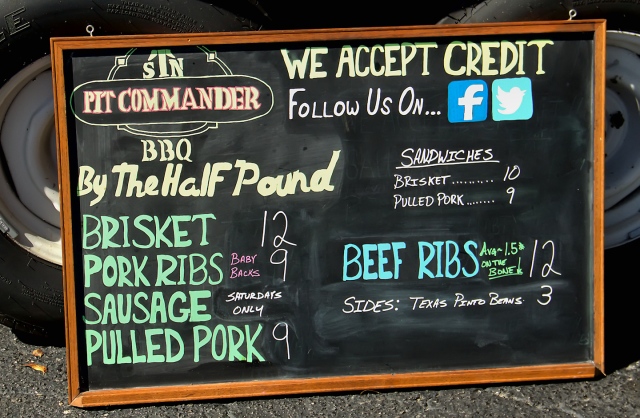 STN
PIT COMMANDER
BBQ
WE ACCEPT CREDIT
FOLLOW US ON...
BY THE HALF POUND
BRISKET 12
PORK RIBS BABY BACKS 9
SAUSAGE SATURDAYS ONLY
PULLED PORK 9
SANDWICHES
BRISKET.......... 10
PULLED PORK....... 9
BEEF RIBS AVG~1.5# ON THE BONE! 12
SIDES: TEXAS PINTO BEANS 3